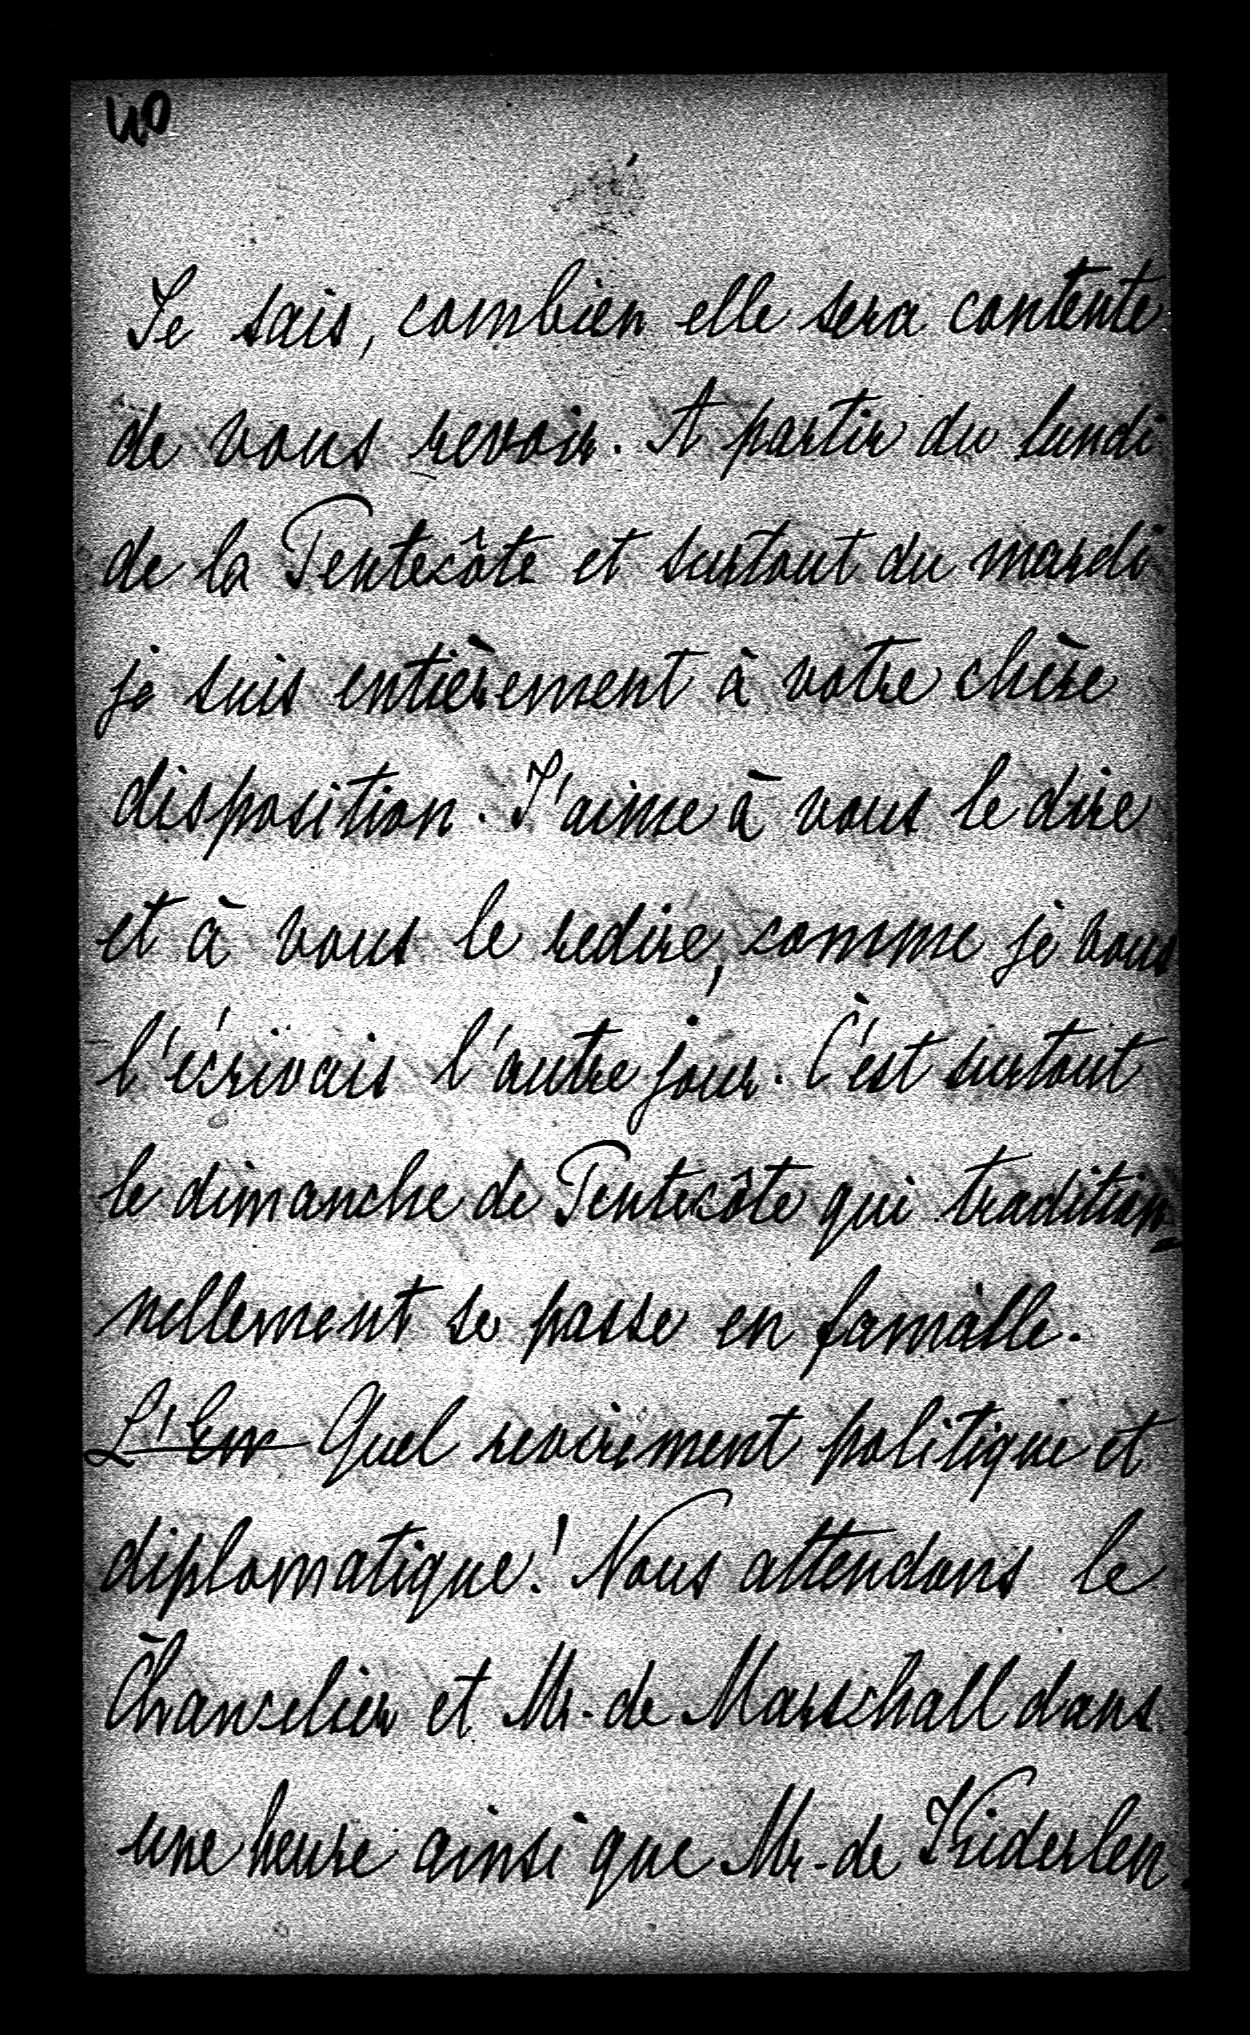 40
Je sais, combien elle sera contente
de vous revoir. A partir du lundi
de la Pentecôte et surtout du mardi
je suis entièrement à votre chère
disposition. J'aime à vous le dire
et à vous le redire, comme je vous
l'écrivais l'autre jour. C'est surtout
le dimanche de Pentecôte qui tradition-
nellement se passe en famille.
L'Em Quel revirement politique et
diplomatique! Nous attendons le
Chancelier et Mr. de Marschall dans
une heure ainsi que Mr. de Kiderlen.